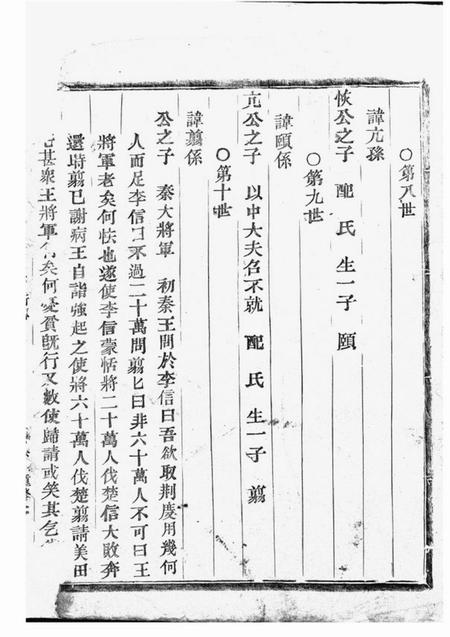 ○第八世
諱亢孫
恢公之子 配 氏 生一子 頤
○第九世
諱頤係
亢公之子 以中大夫召不就 配 氏 生一子 翦
○第十世
諱翦係
公之子 秦大將軍 初秦王問於李信曰吾欲取荆度用幾何
人而足李信曰不過二十萬問翦匕曰非六十萬人不可曰王
將軍老矣何怯也遂使李信蒙恬將二十萬人伐楚信大敗奔
還時翦已謝病王自詣強起之使將六十萬人伐楚翦請美田
甚衆王將軍行矣何憂貧既行又數使歸請或笑其乞